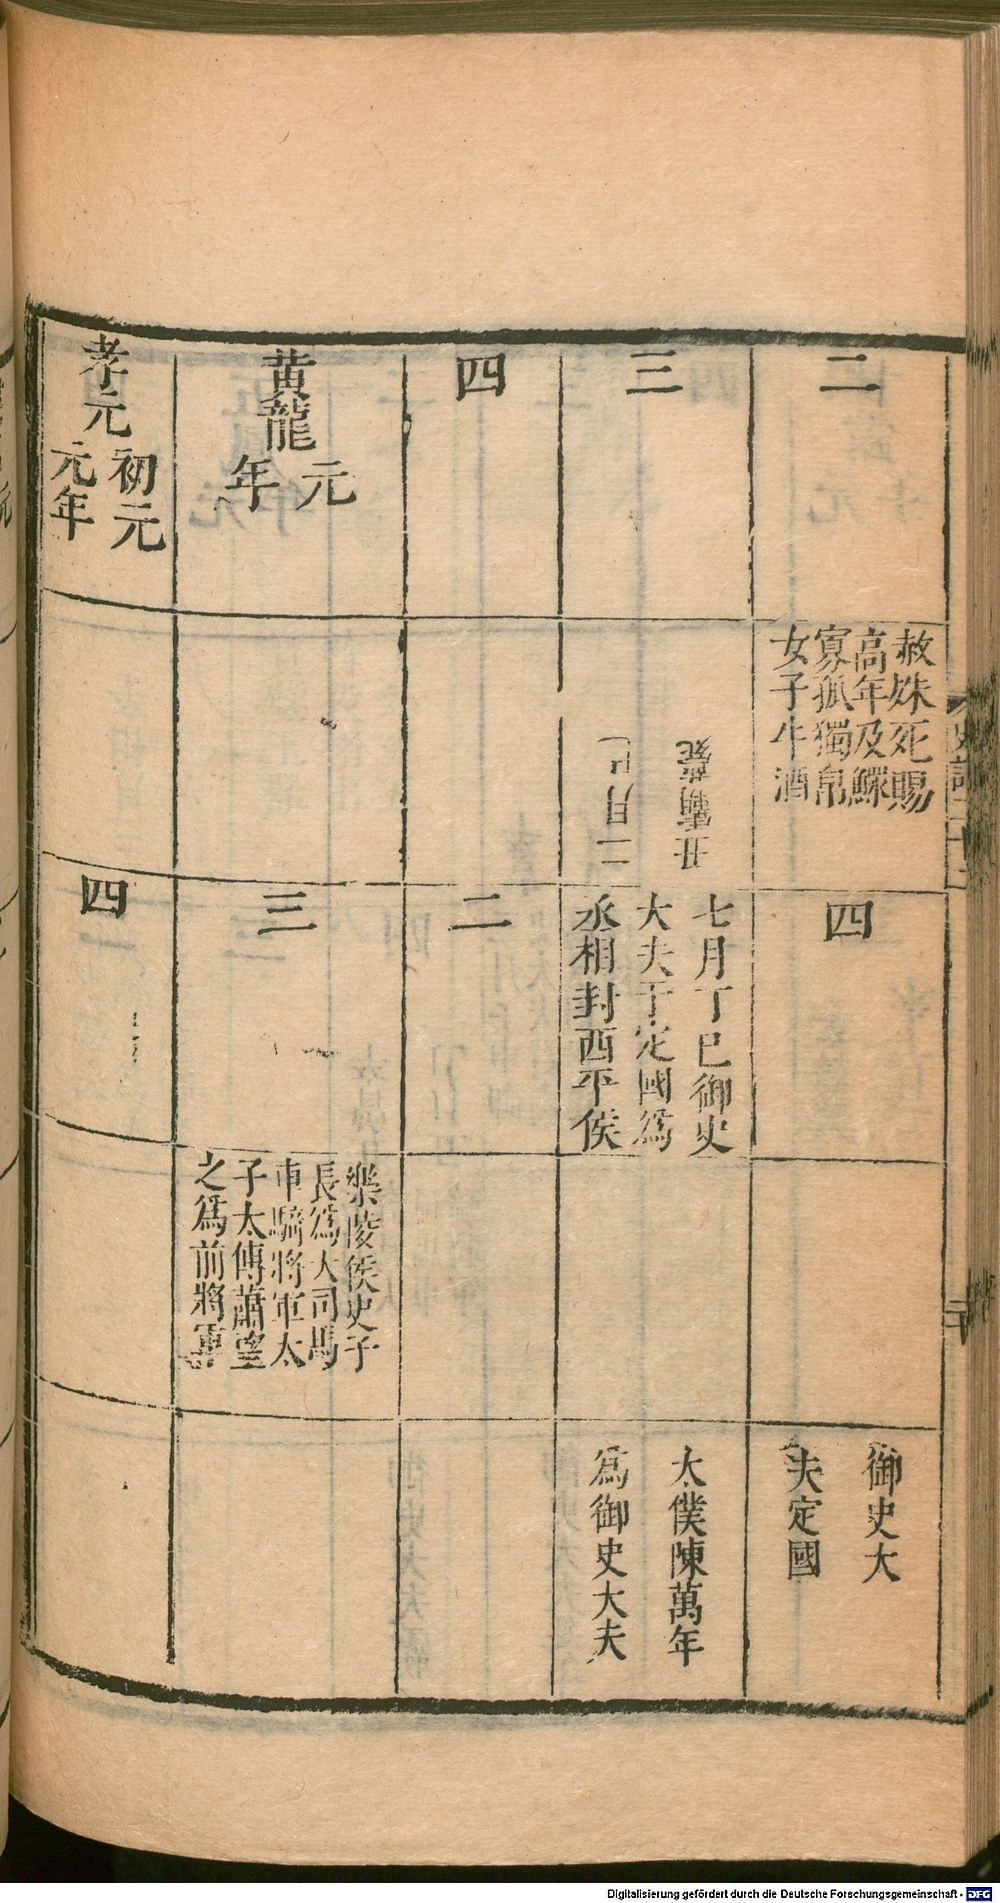 二
赦殊死賜
高年及鰥
寡孤獨帛
女子牛酒
四
御史大
夫定國
三
丑霸薨
二月己
七月丁巳御史
大夫于定國爲
丞相封西平侯
太僕陳萬年
爲御史大夫
四
二
黄龍元
年
三
樂陵侯史子
長爲大司馬
車騎將軍太
子太傅蕭望
之爲前將軍
孝元初元
元年
四
二十
Digitalisierung gefördert durch die Deutsche Forschungsgemeinschaft - DFG